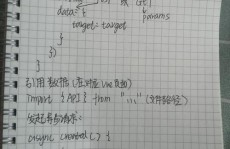 data: {
params
target: target
}
})
}
引用数据(在对应 Vue 页面)
Import { API } from "..." (文件路径)
发起异步请求:
async created() {